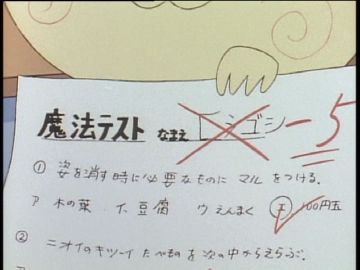 魔法テスト なまえ ヒシゴシ -5
① 姿を消す時に必要なものに マルをつける.
ア 木の葉 イ 豆腐 ウ えんまく エ 100円玉
② ニオイのキツイ たべものを次の中からえらぶ.